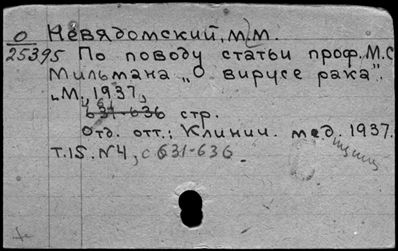 О Невядомский, М.М.
25395 По поводу статьи проф. М.С.
Мильмана „О вирусе рака".
„М, 1937,
631-636 стр.
Отд. отт.: Клинич. мед. 1937.
т.15. №4, с 631-636